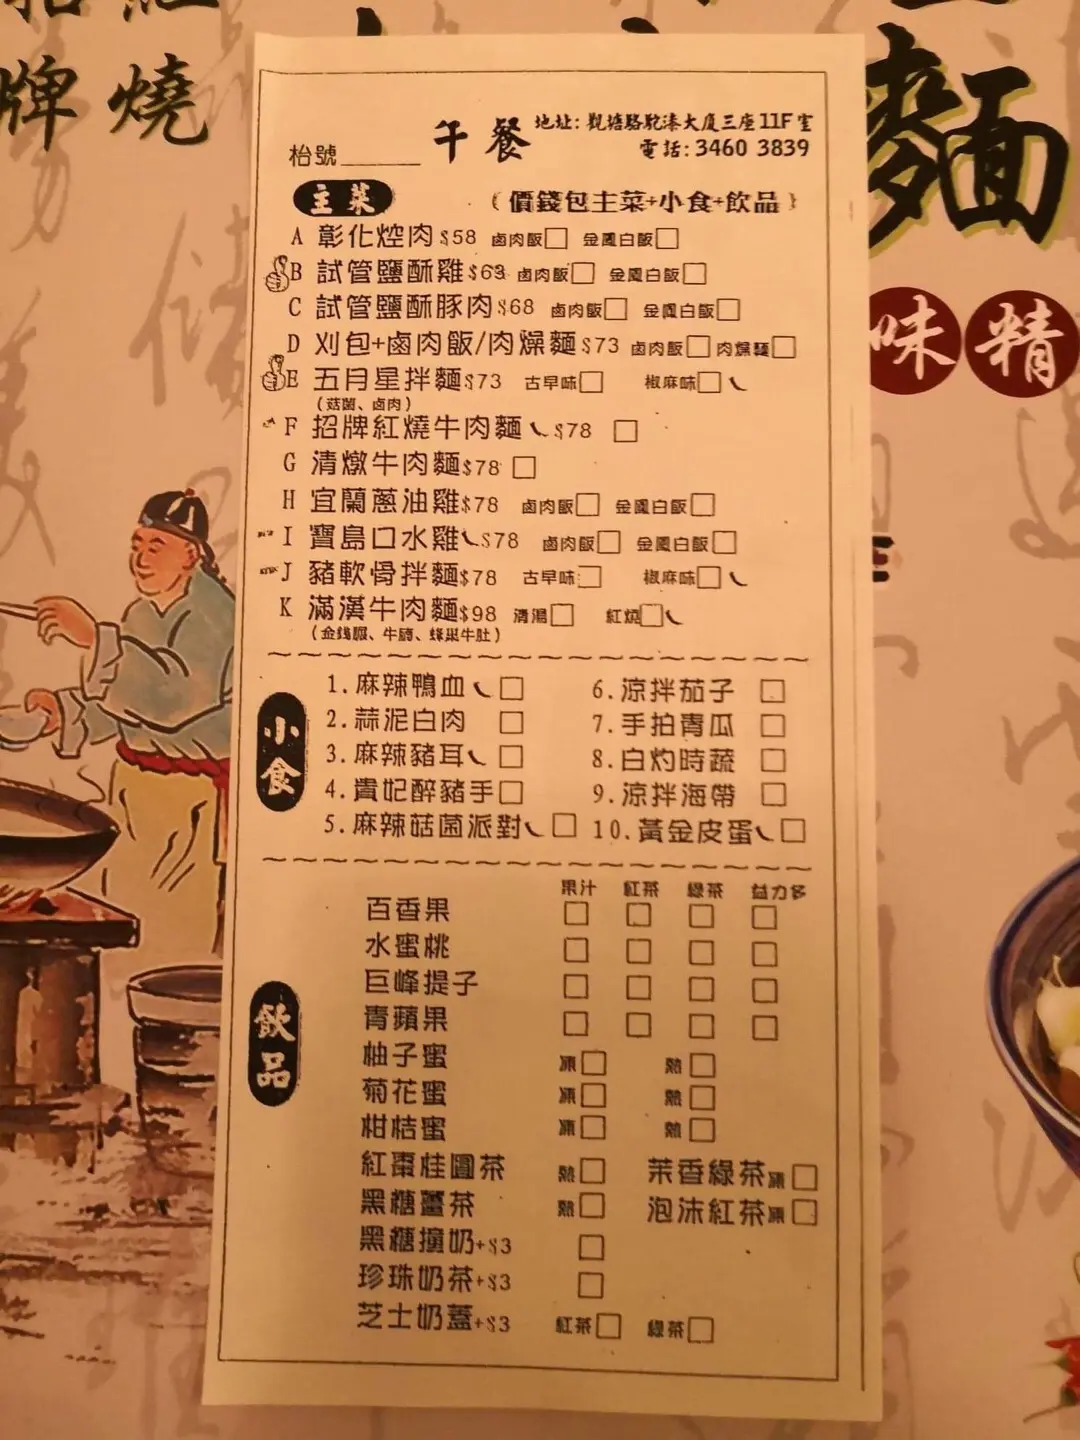 牌 燒
麵
味 精
午餐
地址: 觀塘駱駝漆大廈三座11F室
電話: 3460 3839
枱號
主菜
(價錢包主菜+小食+飲品)
A 彰化焢肉 $58 鹵肉飯 金鳳白飯
B 試管鹽酥雞 $63 鹵肉飯 金鳳白飯
C 試管鹽酥豚肉 $68 鹵肉飯 金鳳白飯
D 刈包+鹵肉飯/肉燥麵 $73 鹵肉飯 肉燥麵
E 五月星拌麵 $73 古早味 椒麻味
(菇菌、鹵肉)
F 招牌紅燒牛肉麵 $78
G 清燉牛肉麵 $78
H 宜蘭蔥油雞 $78 鹵肉飯 金鳳白飯
I 寶島口水雞 $78 鹵肉飯 金鳳白飯
J 豬軟骨拌麵 $78 古早味 椒麻味
K 滿漢牛肉麵 $98 清湯 紅燒
(金錢腱、牛腩、蜂巢牛肚)
小食
1. 麻辣鴨血 6. 涼拌茄子
2. 蒜泥白肉 7. 手拍青瓜
3. 麻辣豬耳 8. 白灼時蔬
4. 貴妃醉豬手 9. 涼拌海帶
5. 麻辣菇菌派對 10. 黃金皮蛋
飲品
果汁 紅茶 綠茶 益力多
百香果
水蜜桃
巨峰提子
青蘋果
柚子蜜 凍 熱
菊花蜜 凍 熱
柑桔蜜 凍 熱
紅棗桂圓茶 熱 茉香綠茶 凍
黑糖薑茶 熱 泡沫紅茶 凍
黑糖撞奶+$3
珍珠奶茶+$3
芝士奶蓋+$3 紅茶 綠茶